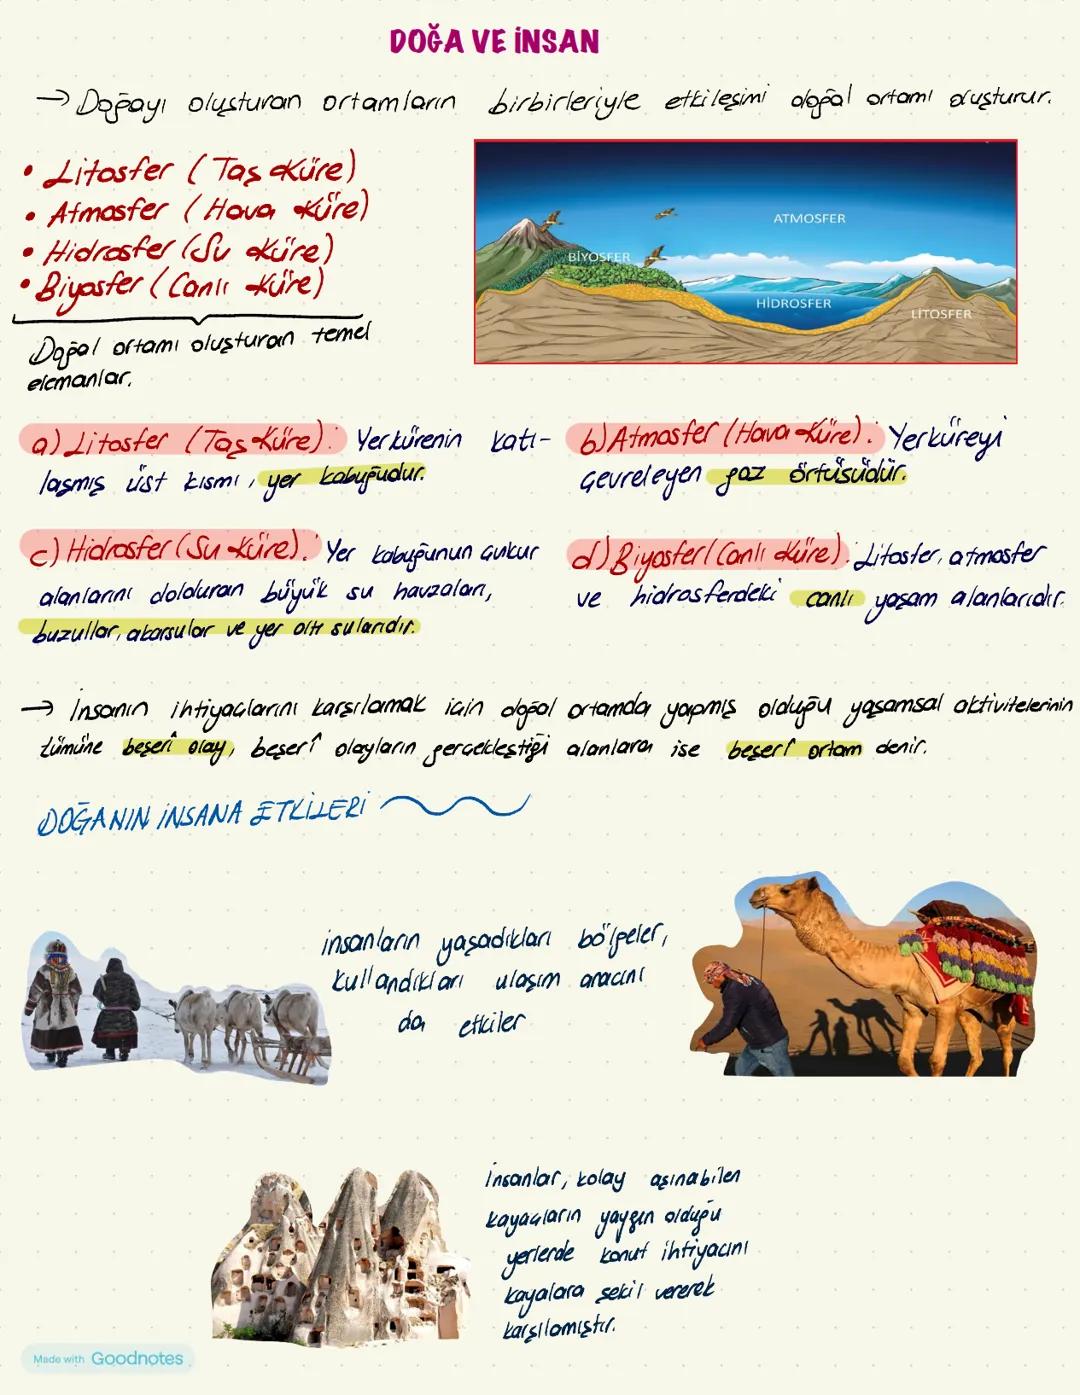 DOĞA VE İNSAN
→ Doğayı oluşturan ortamların birbirleriyle etkileşimi doğal ortamı oluşturur.
• Litosfer (Taş Küre)
• Atmosfer (Hava Küre)
• Hidrosfer (Su Küre)
• Biyosfer (Canlı Küre)
Doğal ortamı oluşturan temel
elemanlar.
ATMOSFER
BİYOSFER
HİDROSFER
LİTOSFER
a) Litosfer (Taş Küre): Yerkürenin katı-
laşmış üst kısmı, yer kabuğudur.
b) Atmosfer (Hava Küre): Yerküreyi
çevreleyen gaz örtüsüdür.
c) Hidrosfer (Su Küre): Yer kabuğunun çukur
alanlarını dolduran büyük su havzaları,
buzullar, akarsular ve yer altı sularıdır.
d) Biyosfer (Canlı Küre): Litosfer, atmosfer
ve hidrosferdeki canlı yaşam alanlarıdır.
→ İnsanın ihtiyaçlarını karşılamak için doğal ortamda yapmış olduğu yaşamsal aktivitelerinin
tümüne beşerî olay, beşerî olayların gerçekleştiği alanlara ise beşerî ortam denir.
DOĞANIN İNSANA ETKİLERİ
insanların yaşadıkları bölgeler,
kullandıkları ulaşım aracını
da etkiler
İnsanlar, kolay aşınabilen
kayaçların yaygın olduğu
yerlerde konut ihtiyacını
kayalara şekil vererek
karşılamıştır.
Made with Goodnotes